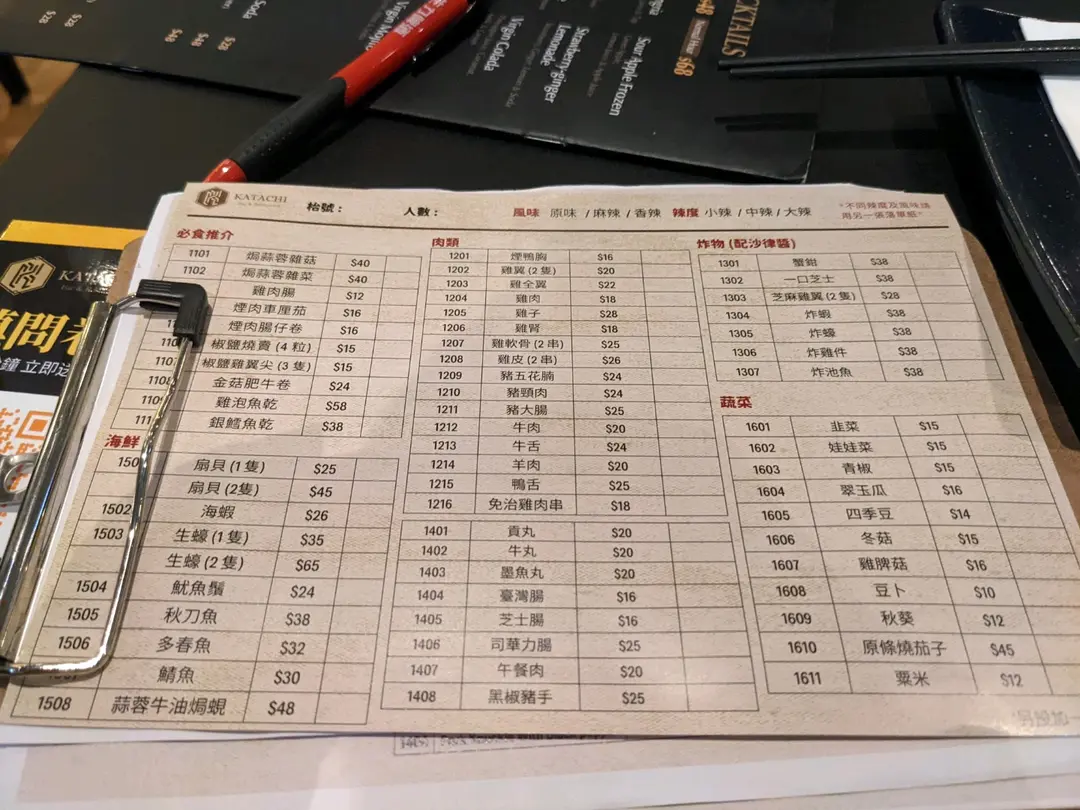 Soda
$28
$48
$28
$28
Virgin Mojito
Virgin Colada
Strawberry-ginger
Lemonade
Sour Apple Frozen
COCKTAILS
$48
$68
KATACHI
枱號：
人數：
風味 原味 / 麻辣 / 香辣 辣度 小辣 / 中辣 / 大辣
*不同辣度及風味請
用另一張落單紙*
必食推介
1101 焗蒜蓉雜菇 $40
1102 焗蒜蓉雜菜 $40
雞肉腸 $12
煙肉車厘茄 $16
煙肉腸仔卷 $16
椒鹽燒賣 (4 粒) $15
椒鹽雞翼尖 (3 隻) $15
金菇肥牛卷 $24
雞泡魚乾 $58
銀鱈魚乾 $38
海鮮
扇貝 (1 隻) $25
扇貝 (2隻) $45
1502 海蝦 $26
1503 生蠔 (1 隻) $35
生蠔 (2 隻) $65
1504 魷魚鬚 $24
1505 秋刀魚 $38
1506 多春魚 $32
鯖魚 $30
1508 蒜蓉牛油焗蜆 $48
肉類
1201 煙鴨胸 $16
1202 雞翼 (2 隻) $20
1203 雞全翼 $22
1204 雞肉 $18
1205 雞子 $28
1206 雞腎 $18
1207 雞軟骨 (2 串) $25
1208 雞皮 (2 串) $26
1209 豬五花腩 $24
1210 豬頸肉 $24
1211 豬大腸 $25
1212 牛肉 $20
1213 牛舌 $24
1214 羊肉 $20
1215 鴨舌 $25
1216 免治雞肉串 $18
1401 貢丸 $20
1402 牛丸 $20
1403 墨魚丸 $20
1404 臺灣腸 $16
1405 芝士腸 $16
1406 司華力腸 $25
1407 午餐肉 $20
1408 黑椒豬手 $25
炸物 (配沙律醬)
1301 蟹鉗 $38
1302 一口芝士 $38
1303 芝麻雞翼 (2 隻) $28
1304 炸蝦 $38
1305 炸蠔 $38
1306 炸雞件 $38
1307 炸池魚 $38
蔬菜
1601 韭菜 $15
1602 娃娃菜 $15
1603 青椒 $15
1604 翠玉瓜 $16
1605 四季豆 $14
1606 冬菇 $15
1607 雞脾菇 $16
1608 豆卜 $10
1609 秋葵 $12
1610 原條燒茄子 $45
1611 粟米 $12
KATACHI
問卷
鐘 立即送